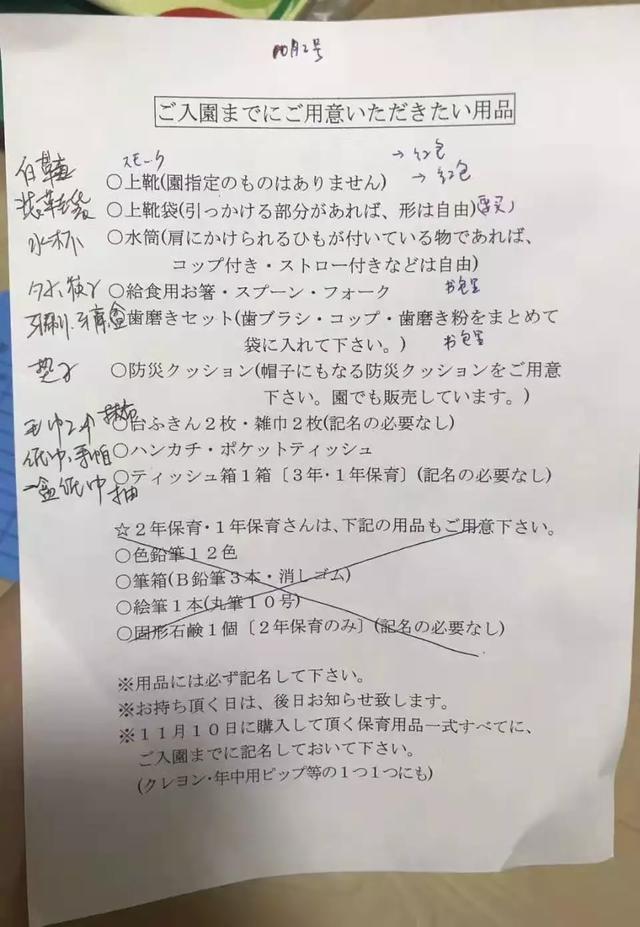 10月2号
ご入園までにご用意いただきたい用品
スモーク →红包
白鞋 ○上靴(園指定のものはありません) →红包
装鞋袋 ○上靴袋(引っかける部分があれば、形は自由)
水杯 ○水筒(肩にかけられるひもが付いている物であれば、
コップ付き・ストロー付きなどは自由)
○給食用お箸・スプーン・フォーク 书包里
牙刷.牙膏盒 ○歯磨きセット(歯ブラシ・コップ・歯磨き粉をまとめて
袋に入れて下さい。) 书包里
垫子 ○防災クッション(帽子にもなる防災クッションをご用意
下さい。園でも販売しています。)
毛巾2个 抹布 ○台ふきん2枚・雑巾2枚(記名の必要なし)
纸巾.手帕 ○ハンカチ・ポケットティッシュ
一盒纸巾抽 ○ティッシュ箱1箱〔3年・1年保育〕(記名の必要なし)
☆2年保育・1年保育さんは、下記の用品もご用意下さい。
○色鉛筆12色
○筆箱(B鉛筆3本・消しゴム)
○絵筆1本(丸筆10号)
○固形石鹸1個〔2年保育のみ〕(記名の必要なし)
※用品には必ず記名して下さい。
※お持ち頂く日は、後日お知らせ致します。
※11月10日に購入して頂く保育用品一式すべてに、
ご入園までに記名しておいて下さい。
(クレヨン・年中用ピップ等の1つ1つにも)